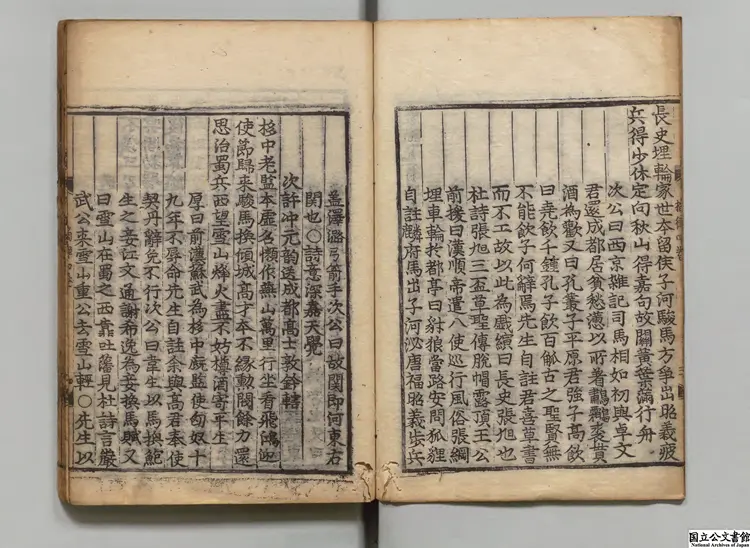 長史埋輪家世本留侯子河駿馬方爭出昭義疲
兵得少休定向秋山得嘉句故關黃葉滿行舟
次公曰西京雜記司馬相如初與卓文
君還成都居貧愁懣以所著鷫鸘裘貰
酒為歡又曰孔叢子平原君強子高飲
曰堯飲千鍾孔子飲百觚古之聖賢無
不能飲子何辭焉先生自註君喜草書
而不工故以此為戲續曰長史張旭也
杜詩張旭三盃草聖傳脫帽露頂王公
前援曰漢順帝遣八使巡行風俗張綱
埋車輪於都亭曰豺狼當路安問狐狸
自註麟府馬出子河汊唐福昭義步兵
蓋澤潞弓箭手次公曰故關即河東右
關也〇詩意深嘉天覺
次許冲元韻送成都高士敦鈐轄
移中老監本虛名懶作燕山萬里行坐看飛鴻迎
使節歸來駿馬換傾城高才本不緣勳閥餘力還
思治蜀兵西望雪山烽火盡不妨樽酒寄平生
厚曰前漢蘇武為栘中廐監使匈奴十
九年不辱命先生自註余與高君奉使
契丹辭免不行次公曰韋生以馬換鮑
生之妾江文通謝希逸為妾換馬賦又
曰雪山在蜀之西靠吐蕃見杜詩言嚴
武公来雪山重公去雪山輕〇先生以
国立公文書館
National Archives of Japan